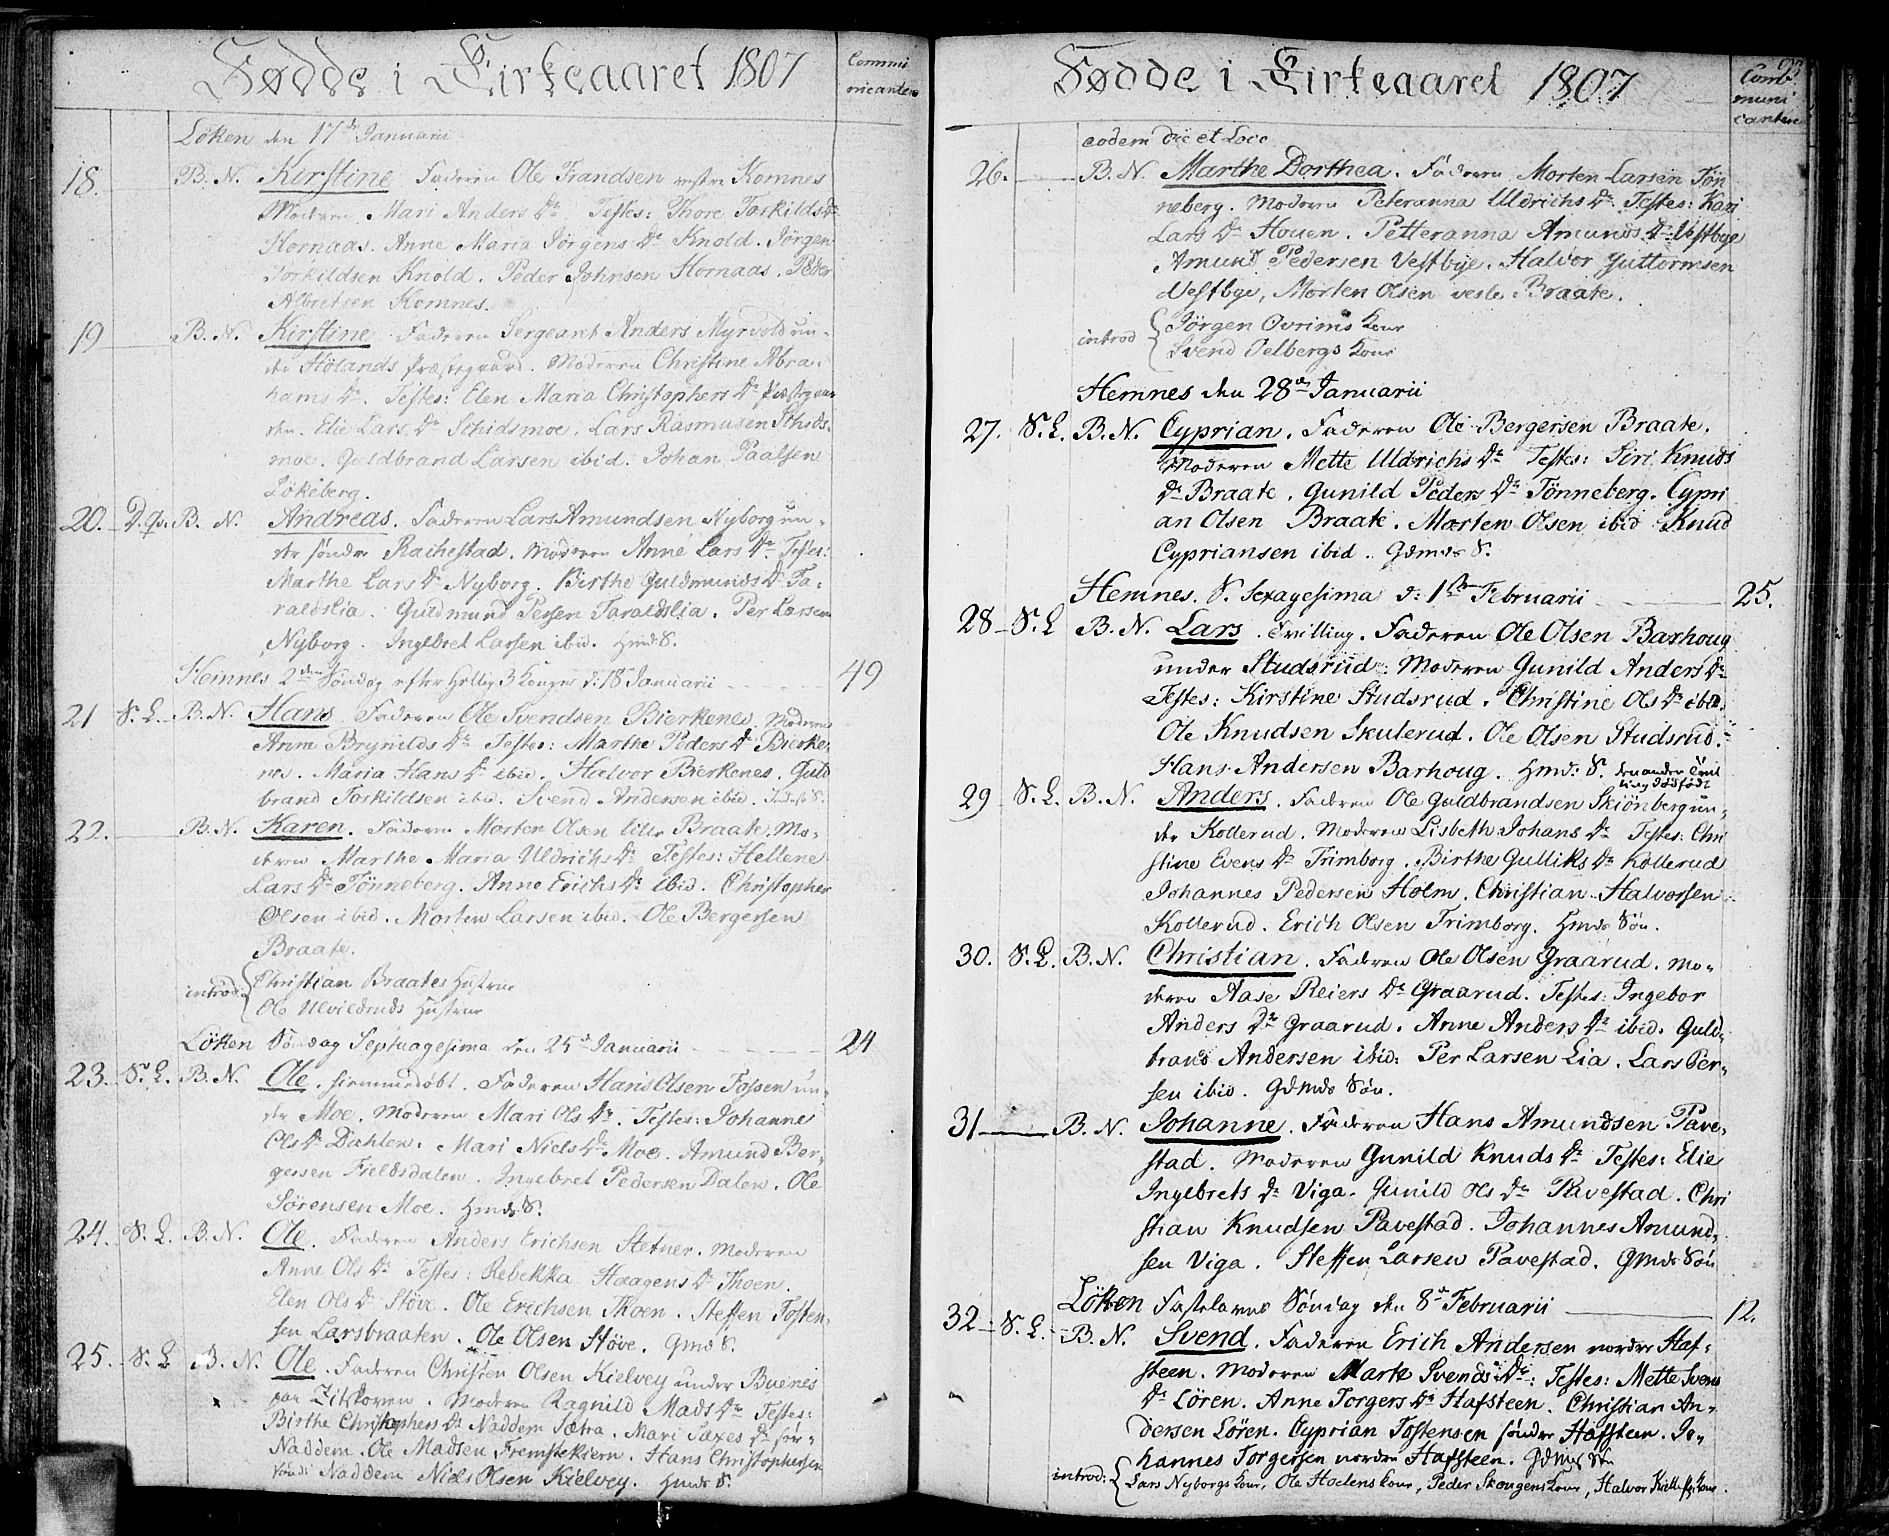 Fødde i Kirkeaaret 1807
Commu
nicantes
Löken den 17de Januarii
18. B. N. Kirstine Faderen Ole Frandsen vestre Komnes
Moderen Mari Anders Dr Testes: Thore Torkilds Dr
Hornaas. Anne Maria Jörgens Dr Knold. Jörgen
Torkildsen Knold. Peder Johnsen Hornaas. Peder
Albretsen Komnes.
19 B. N. Kirstine Faderen Sergeant Anders Myrvold un-
der Hölands Præstegaard. Moderen Christine Abra-
hams Dr. Testes: Elen Maria Christophers Dr Præstegaar
den. Elie Lars Dr Schidsmoe. Lars Rasmusen Schids-
moe. Guldbrand Larsen ibid. Johan Paalsen
Lökeberg.
20. D. qs. B. N. Andreas. Faderen Lars Amundsen Nyborg un-
der söndre Rachestad. Moderen Anne Lars Dr Testes:
Marthe Lars Dr Nyborg. Birthe Guldmunds Dr Ta-
raldslia. Guldmund Persen Taraldslia. Per Larsen
Nyborg. Ingebret Larsen ibid. Hmds S.
Hemnes 2den Söndag efter Hellig 3 Konger d: 18 Januarii 49
21 S. L. B. N. Hans Faderen Ole Svendsen Bierkenes. Moderen
Anne Brynilds Dr Testes: Marthe Peders Dr Bierke
nes. Maria Hans Dr ibid. Halvor Bierkenes. Guld
brand Torkildsen ibid. Svend Andersen ibid. S.
22. B. N. Karen. Faderen Morten Olsen lille Braate. Mo-
deren Marthe Maria Uldrichs Dr Testes: Hellene
Lars Dr Tönneberg. Anne Erichs Dr ibid. Christopher
Olsen ibid. Morten Larsen ibid. Ole Bergersen
Braate.
introd: { Christian Braates Hustrue
Ole Ulvilsruds Hustrue
Löken Söndag Septuagesima den 25d Januarii 24
23. S. L. B. N. Ole. hiemmedøbt. Faderen Hans Olsen Fossen un-
der Moe. Moderen Mari Ols Dr. Testes: Johanne
Ols Dr Dahlen. Mari Niels Dr Moe. Amund Ber-
gersen Fieldsdalen. Ingebret Pedersen Dalen. Ole
Sörensen Moe. Hmds S.
24. S. L. B. N. Ole. Faderen Anders Erichsen Stetner. Moderen
Anne Ols Dr Testes: Rebekka Haagens Dr Thoen.
Elen Ols Dr Stöve. Ole Erichsen Thoen. Steffen Tosten-
sen Larsbraaten. Ole Olsen Stöve. Gmds S.
25. S. L B. N. Ole. Faderen Christen Olsen Kielvey under Buenes
paa Zitskoven. Moderen Ragnild Mads Dr Testes:
Birthe Christophers Dr Naddem Sætra. Mari Saxes Dr sön-
Naddem. Ole Madsen Fremstekiern. Hans Christophersen
söndr Naddem Niels Olsen Kielvey. Hmds S.
Fødde i Kirkeaaret 1807
Com
muni
cantes
eodem die et Loco
26. B. N. Marthe Dorthea. Faderen Morten Larsen Tön
neberg. Moderen Peteranna Uldrichs Dr. Testes: Kari
Lars Dr Houen. Petteranna Amunds Dr Vestbye
Amund Pedersen Vestbye. Halvor Guttormsen
Vestbye, Morten Olsen vesle Braate.
introd { Jörgen Ovrims Kone
Svend Delbergs Kone
Hemnes den 28de Januarii
27. S. L. B. N. Cyprian. Faderen Ole Bergersen Braate.
Moderen Mette Uldrichs Dr Testes: Siri Knuds
Dr Braate. Gunild Peders Dr Tönneberg. Cypri
an Olsen Braate. Morten Olsen ibid Knud
Cypriansen ibid. Gdmds S.
Hemnes. S. Sexagesima d: 1ste Februarii 25.
28 S. L B. N. Lars. Tvilling. Faderen Ole Olsen Barhoug
under Studsrud: Moderen Gunild Anders Dr
Testes: Kirstine Studsrud. Christine Ols Dr ibid.
Ole Knudsen Skulerud. Ole Olsen Studsrud.
Hans Andersen Barhoug. Hmd: S. den anden Tvil
ling dödfödt
29 S. L. B. N. Anders. Faderen Ole Guldbrandsen Skiönberg un-
der Kollerud. Moderen Lisbeth Johans Dr Testes: Chri
stine Evens Dr Trimborg. Birthe Gulliks Dr Kollerud
Johannes Pedersen Holm. Christian Halvorsen
Kollerud. Erich Olsen Trimborg. Hmds Sön.
30. S. L. B. N. Christian. Faderen Ole Olsen Graarud. Mo-
deren Aase Reiers Dr Graarud. Testes: Ingebor
Anders Dr Graarud. Anne Anders Dr ibid. Guld-
brand Andersen ibid: Per Larsen Lia. Lars Per-
sen ibid. Gdmds Sön.
31 B. N. Johanne. Faderen Hans Amundsen Pave-
stad. Moderen Gunild Knuds Dr Testes: Elie
Ingebrets Dr Viga. Gunild Ols Dr Pavestad. Chri
stian Knudsen Pavestad. Johannes Amund-
sen Viga. Steffen Larsen Pavestad. Gmds Sön
Löken Fastelavns Söndag den 8de Februarii 12.
32 S. L. B. N. Svend. Faderen Erich Andersen nordre Haf-
steen. Moderen Marte Svends Dr: Testes: Mette Svens
Dr Lören. Anne Torgers Dr Hafsteen. Christian An-
dersen Lören. Cyprian Tostensen söndre Hafsteen. Jo-
hannes Torgersen nordre Hafsteen. Gdmds Sn
introd: { Lars Nyborgs Kone, Ole Hodens kone, Peder Skougens Kone, Halvor Kone.